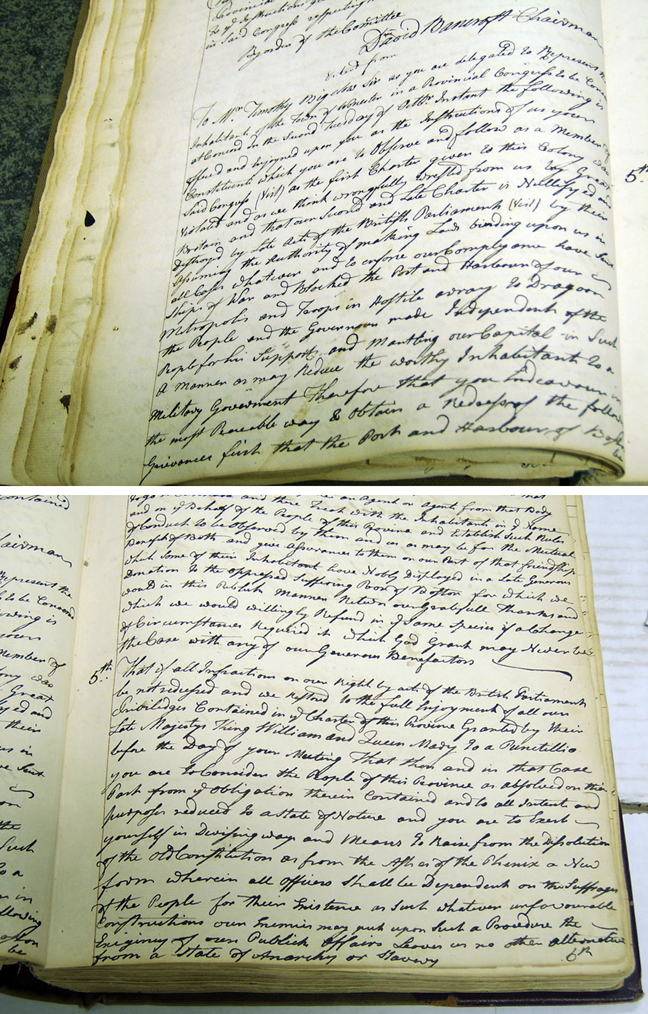 Provincial
to y Instructions
in Said Congress respecting
By order of the Committee
David Bancroft Chairman
To Mr. Timothy Bigelow Sir as you are delegated to Represent the
Inhabitants of the Town of Worcester in a Provincial Congress to be Conv
at Concord on the Second Tuesday of Octbr Instant the following is
offered and enjoyned upon you as the Instructions of us your
Constituents which you are to Observe and follow as a Member of
Said Congress (Viz) as the first Charter given to this Colony was
Vistated and as we think wrongfully wrested from us by Great
Britain and that our Second and Late Charter is Nullifyed and
destroyed by Late Acts of the British Parliament (Viz) by their
Assuming the Authority of making Laws binding upon us in
all Cases Whatever and to enforce our Complyance have Sent
Ships of War and Blocked the Port and Harbour of our
Metropolis and Troops in Hostile array to Dragoon
the People and the Governour made Independent of the
People for his Support and Mantling our Capital in Such
a Manner as may Reduce the worthy Inhabitants to a
Military Government Therefore that you Endeavour in
the most Peaceable way to Obtain a Redress of the follow
Grievances first that the Port and Harbour of Bos
5th
ontained
hairman
Represent the
to be Convened
owing is
Member of
ony was
Great
yed and
their
us in
ve Sent
on
the
Such
to a
in
ollowing
oston
be
an Agent or Agents from that Body
and there Treat with the Inhabitants in y Same
and in y Behalf of the People of this Province and Establish Such Rules
of Conduct to be Observed by them and us as may be for the Mutual
Benefit of Both and give assurances to them on our Part of that friendship
which Some of their Inhabitant have Nobly Displayed in a Late Generous
Donation to the oppressed Suffering Poor of Boston for which we
would in this Publick Manner Return our gratefull Thanks and
which we would willingly Refund in y Same Species if a Change
of Circumstances Required it which God Grant may Never be
the Case with any of our Generous Benefactors
5th That if all Infractions on our Right by acts of the British Parliament
be not redressed and we Restored to the full Enjoyment of all our
Priviledges Contained in y Charter of this Province Granted by their
Late Majestys King William and Queen Mary to a Punctillio
before the Day of your Meeting That then and in that Case
you are to Consider the People of this Province as absolved on their
Part from y obligation therein Contained and to all Intent and
purposes reduced to a State of Nature and you are to Exert
yourself in Devising ways and Means to Raise from the Dissolution
of the Old Constitution as from the Ashes of the Phenix a New
form wherein all officers Shall be Dependent on the Suffrages
of the People for their Existence as Such whatever unfavourable
Constructions our Enemies may put upon Such a Procedure the
Exigincy of our Publick Affairs Leaves us no other alternative
from a State of Anarchy or Slavery
6th